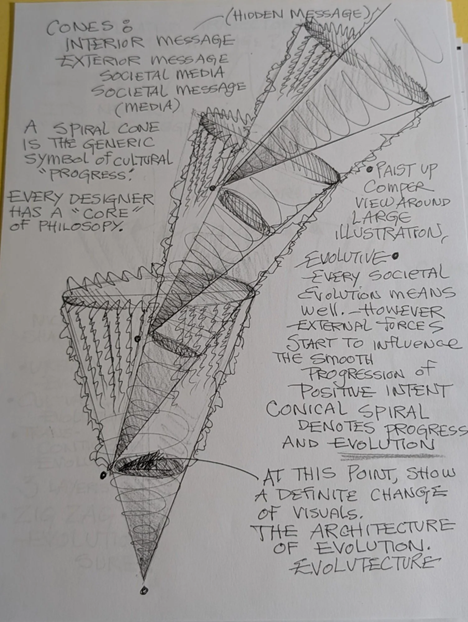 (HIDDEN MESSAGE)
CONES:
INTERIOR MESSAGE
EXTERIOR MESSAGE
SOCIETAL MEDIA
SOCIETAL MESSAGE
(MEDIA)
A SPIRAL CONE
IS THE GENERIC
SYMBOL of CULTURAL
"PROGRESS".
EVERY DESIGNER
HAS A "CORE"
OF PHILOSPY.
• PAIST UP
COMPER
VIEW AROUND
LARGE
ILLUSTRATION,
EVOLUTIVE •
EVERY SOCIETAL
EVOLUTION MEANS
WELL. HOWEVER
EXTERNAL FORCES
START TO INFLUENCE
THE SMOOTH
PROGRESSION OF
POSITIVE INTENT
CONICAL SPIRAL
DENOTES PROGRESS
AND EVOLUTION
AT THIS POINT, SHOW
A DEFINITE CHANGE
OF VISUALS.
THE ARCHITECTURE
OF EVOLUTION.
EVOLUTECTURE